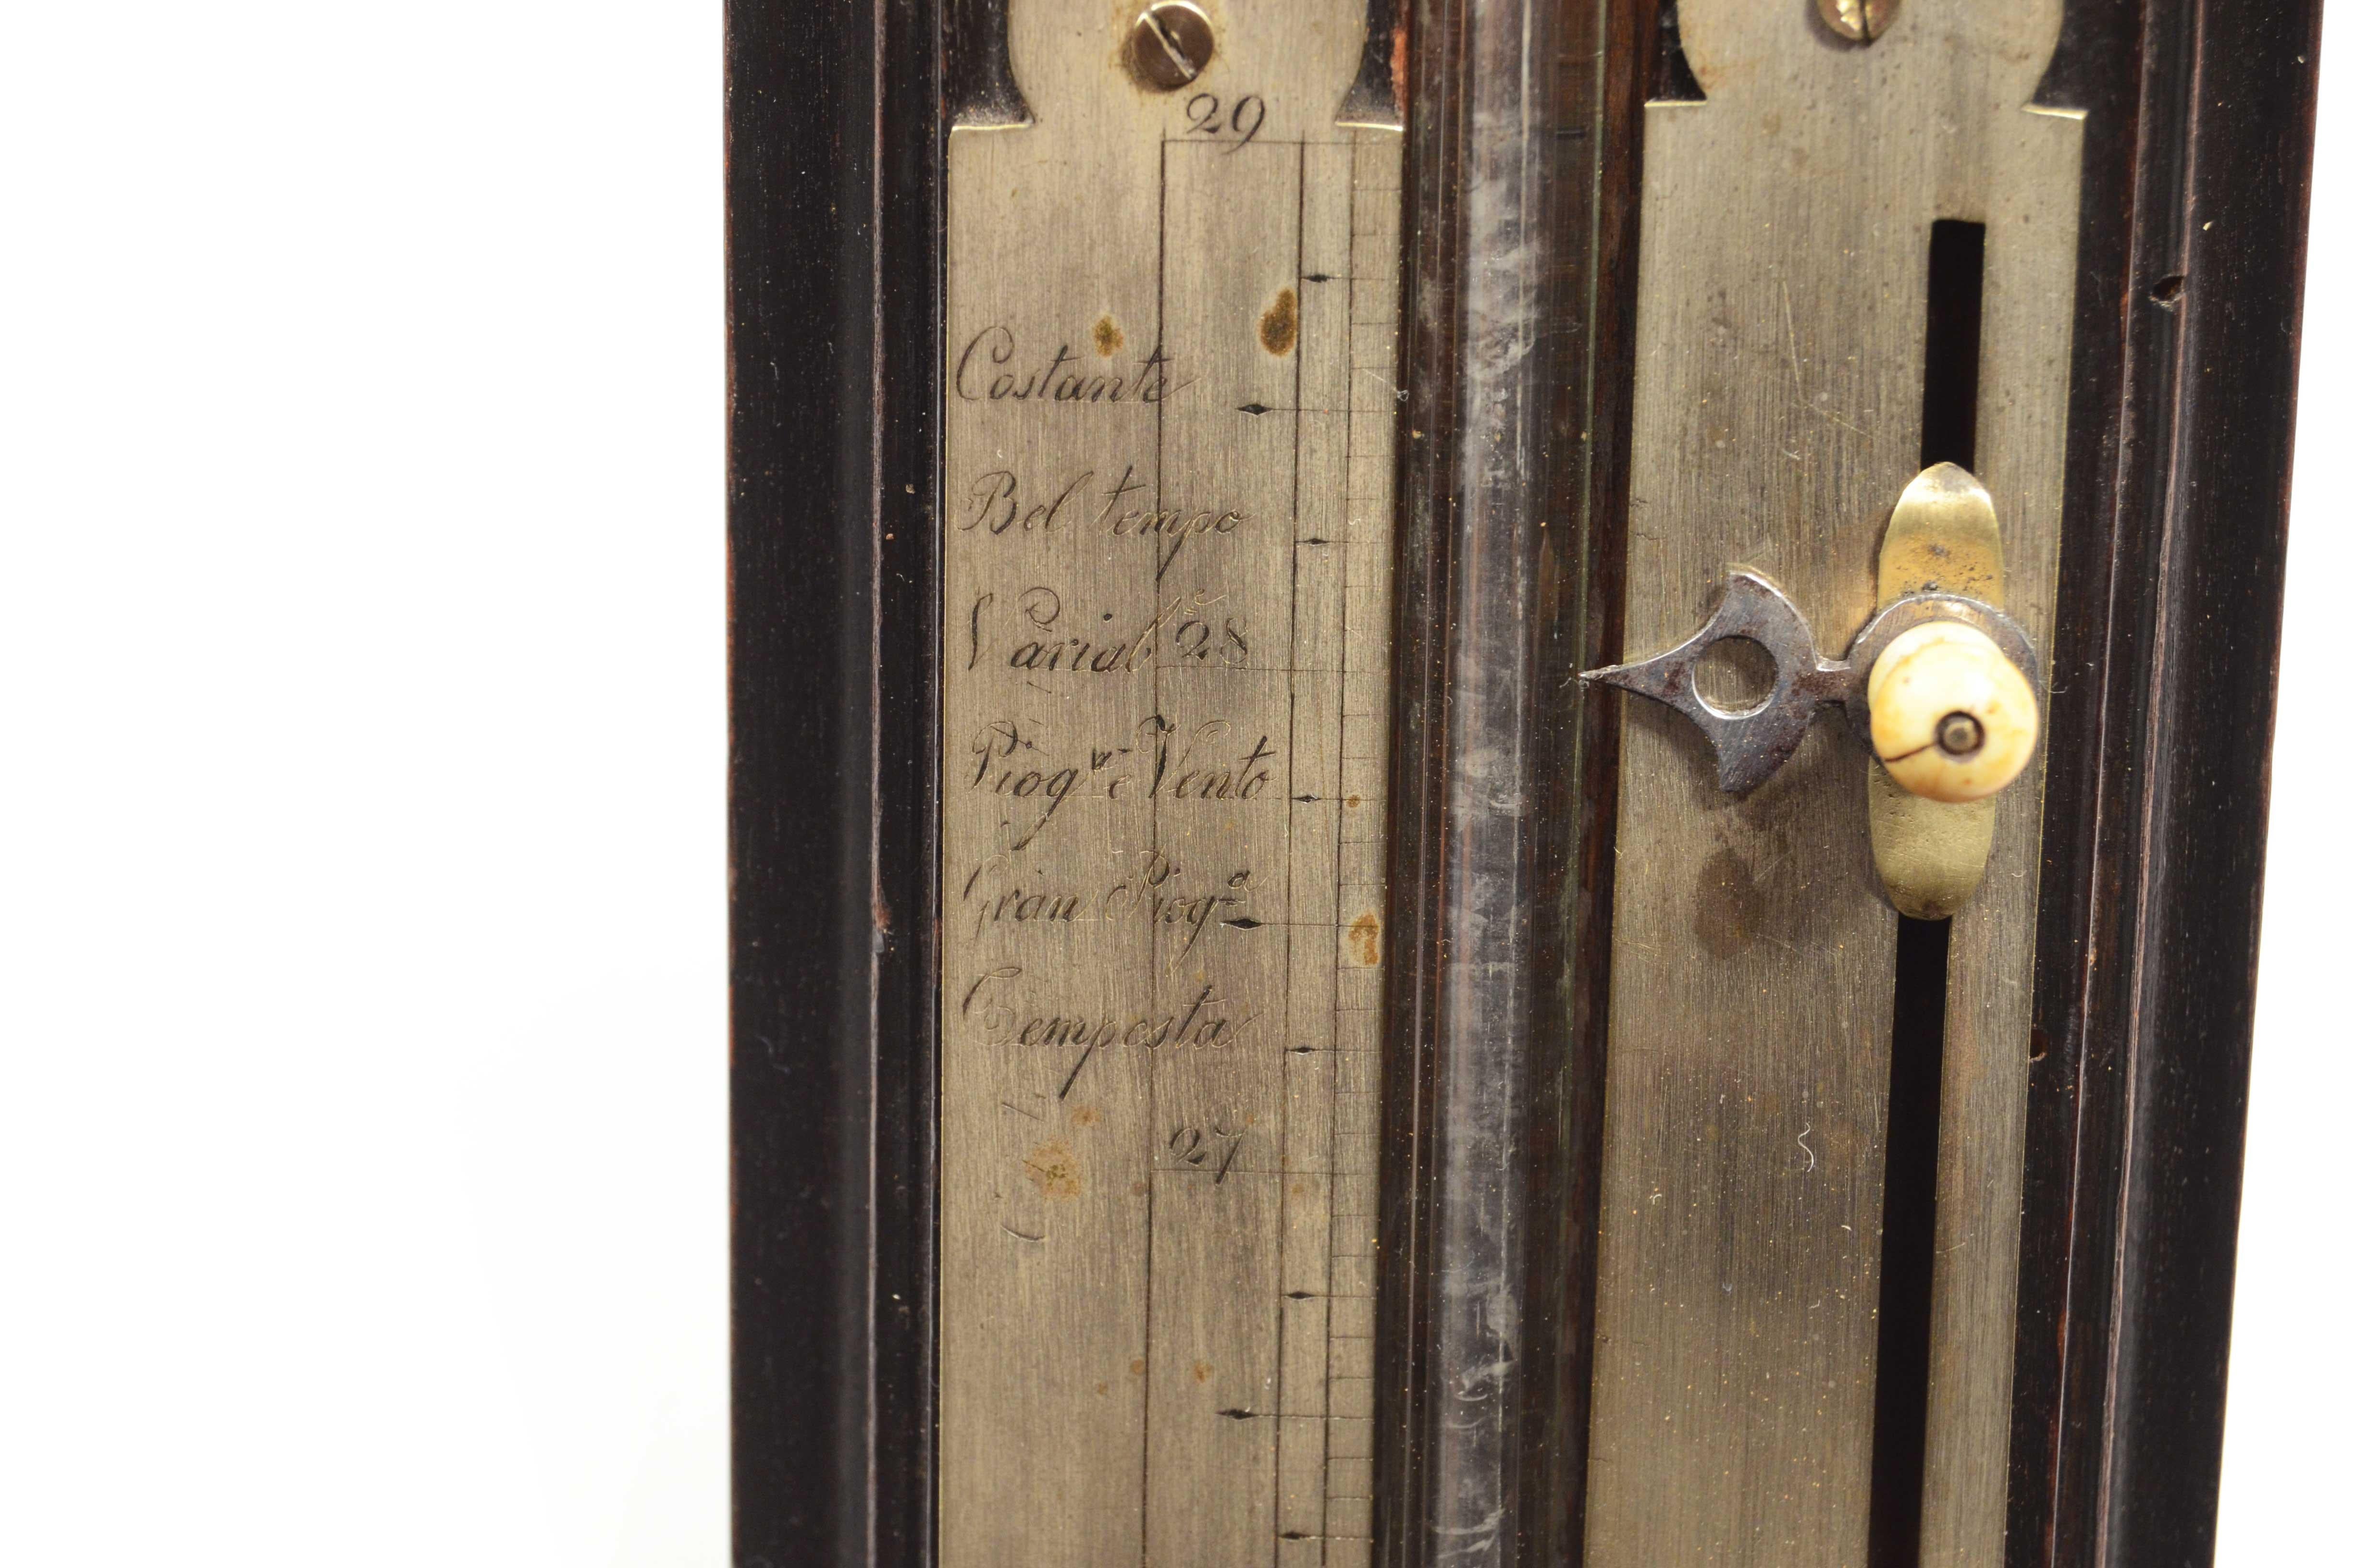 29
Costante
Bel tempo
Variabᵉ 28
Piogᵃ e Vento
Gran Piogᵃ
Tempesta
27